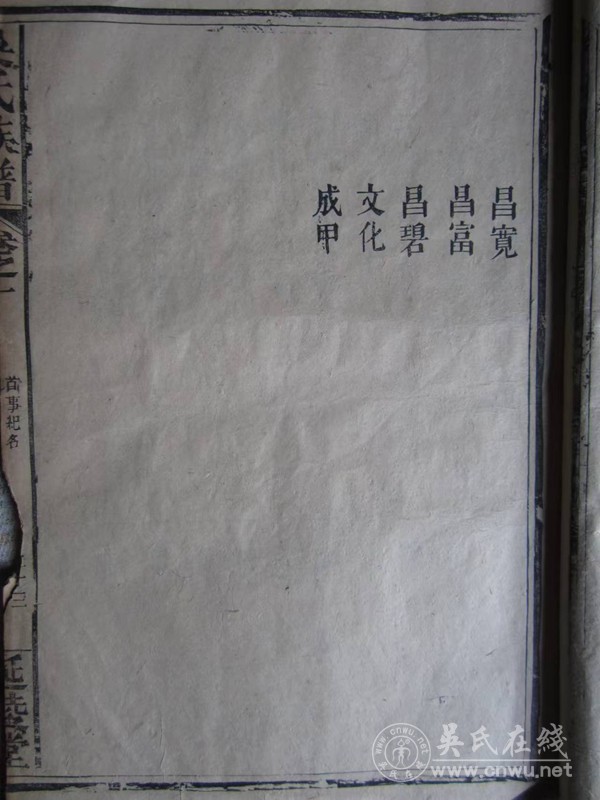 昌寬
昌富
昌碧
文化
成甲
吳氏族譜
卷之一
首事紀名
延陵堂
吴氏在线
www.cnwu.net